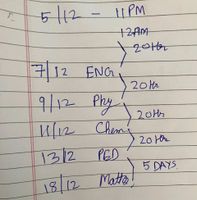 5/12 - 11PM
12AM
20Hr
7/12 ENG
20Hr
9/12 Phy
20Hr
11/12 Chem
20Hr
13/12 PED
5 DAYS
18/12 Maths